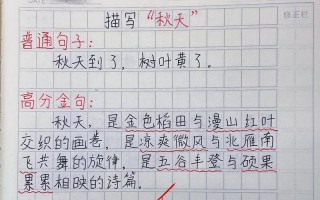 描写“秋天”
普通句子：
秋天到了，树叶黄了。
高分金句：
秋天，是金色稻田与漫山红叶
交织的画卷，是凉爽微风与北雁南
飞共舞的旋律，是五谷丰登与硕果
累累相映的诗篇。